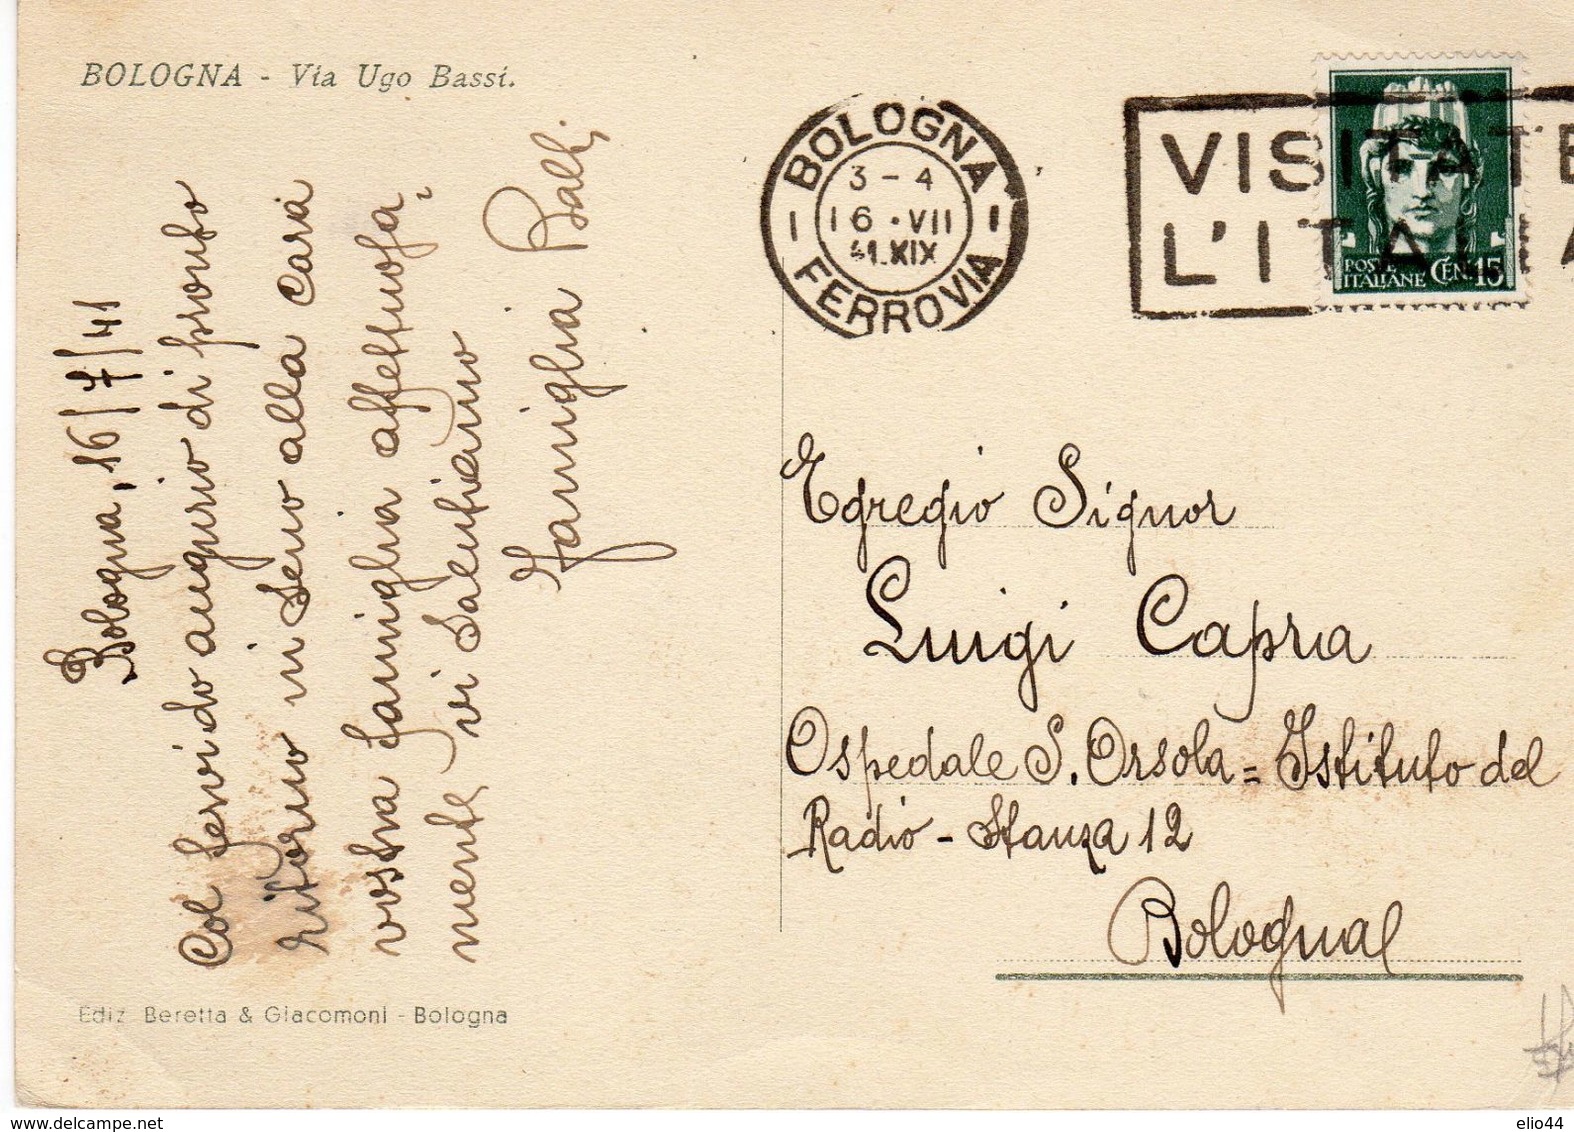 BOLOGNA - Via Ugo Bassi.
Bologna, 16/7/41
Col fervido augurio di pronto
ritorno in seno alla cara
vostra famiglia affettuosa,
mente vi salutiamo
Famiglia Balli
Ediz. Beretta & Giacomoni - Bologna
BOLOGNA
3 - 4
16 · VII
41.XIX
FERROVIA
VISITATE
L'ITALIA
POSTE
ITALIANE CENT. 15
Egregio Signor
Luigi Capra
Ospedale S. Orsola = Istituto del
Radio - Stanza 12
Bologna
delcampe.net
elio44